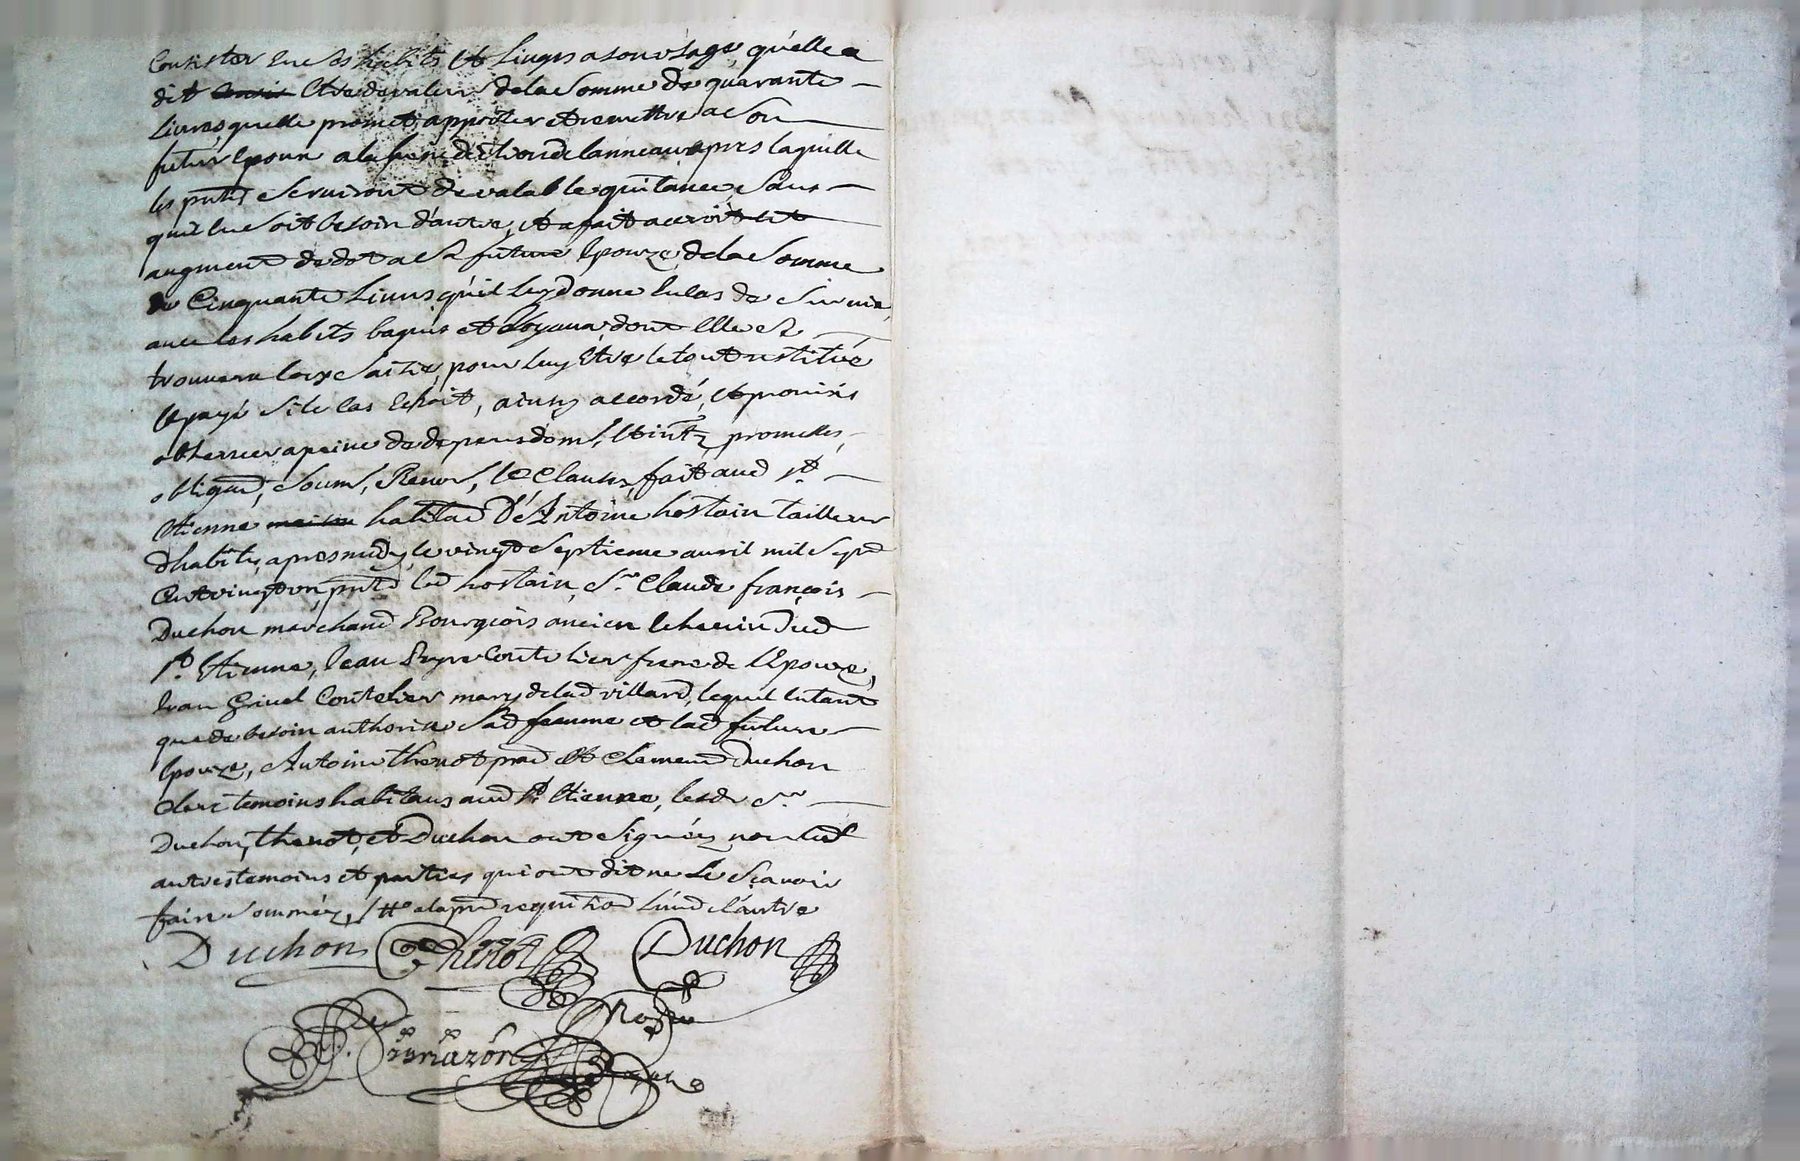 Consister en ses habits et Linges a son usage, qu'elle a
dit etre de valeur de la Somme de quarante
Livres, qu'elle promet apporter et remettre a Son
futur Epoux a la benediction de lanneau apres laquelle
les pntes Serviront de valable quitance, Sans
quil en Soit besoin d'autre, et a fait accroit et
augment de dot a Sa future Epouze, de la Somme
de Cinquante Livres qu'il luy donne en cas de Survie
avec les habits bagues et Joyaux dont Elle se
trouvera lors Saisie, pour luy Etre le tout restitué
et payé si le cas Echoit, ainsy accordé, et promis
observer a peine de depens dom, et intz promesses,
obligaõ, Soum, Renon, et Clauses, fait aud St
Etienne habitaõ D'Antoine hostain tailleur
d'habits, apres midy, le vingt Septieme avril mil Sept
Cent vingt un, pnts led hostain, Sr Claude françois
Duchon marchand Bourgeois ancien Echevin dud
St Etienne, Jean Coutelier frere de l'Epouze,
Jean Grivel Coutelier mary de lad villard, lequel entant
que de besoin authorise Sad femme et lad future
Epouze, Antoine thenot praõ et Clemend Duchon
clerc temoins habitans aud St Etienne, lesd Sr
Duchon, thenot, et Duchon ont Signéz, non les
autres temoins et parties qui ont dit ne le Scavoir
faire Sommés, la requisitioñ L'un et l'autre
Duchon Thenot Duchon